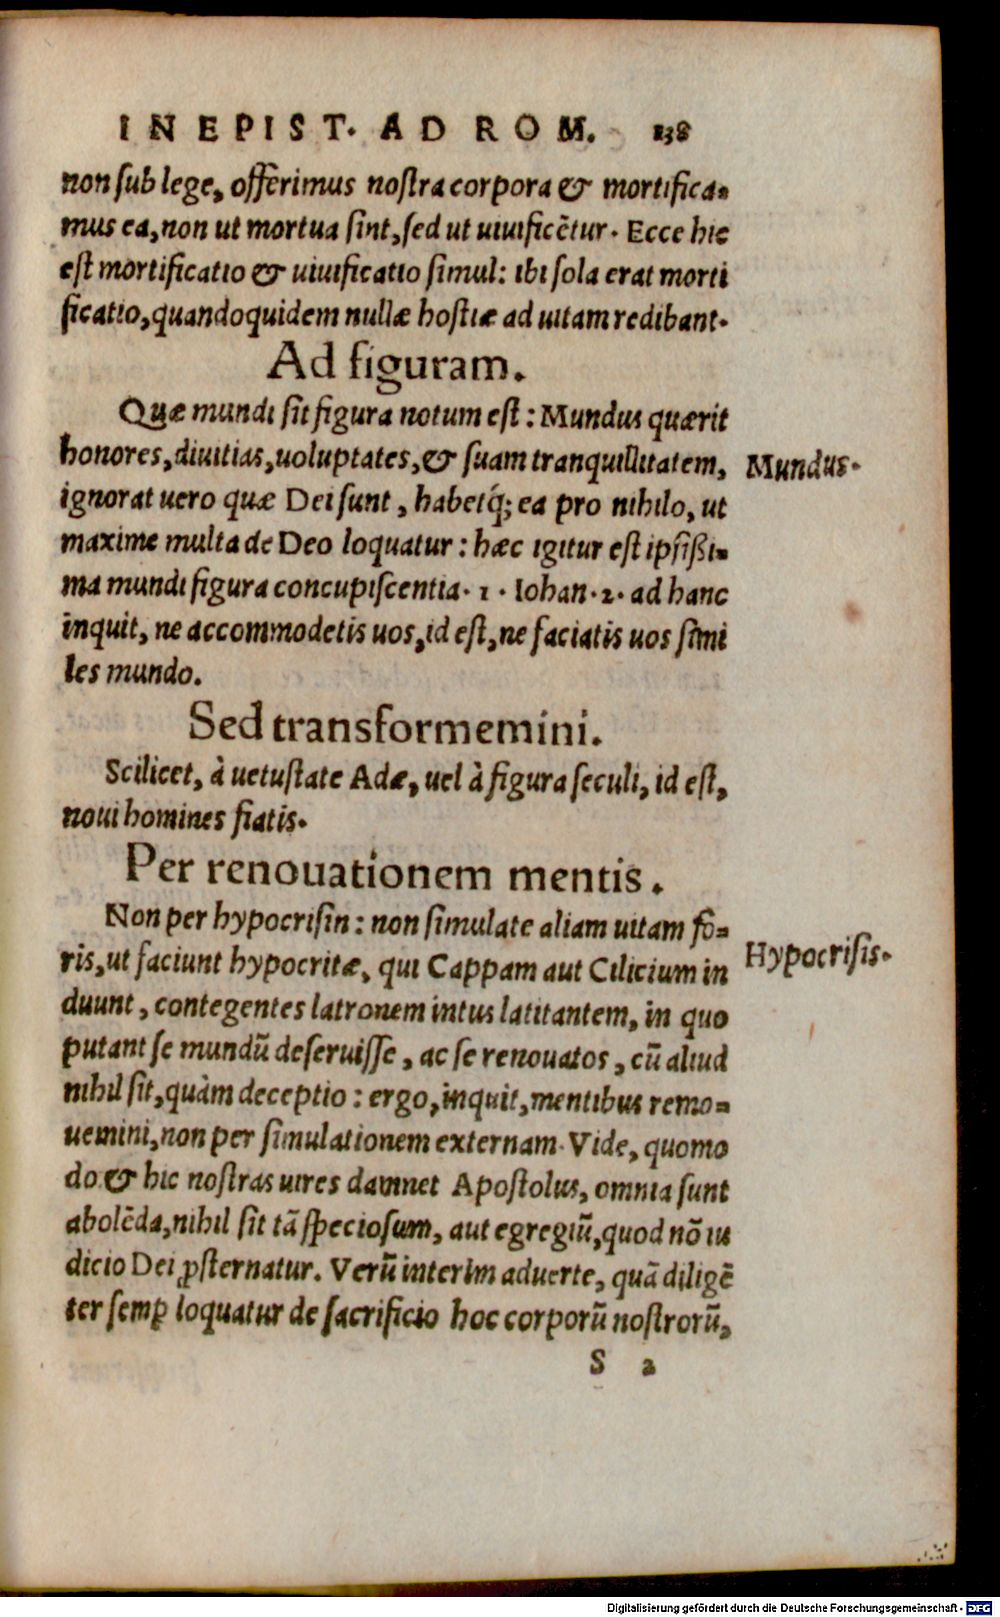 IN EPIST. AD ROM. 138
non ſub lege, offerimus noſtra corpora & mortifica-
mus ea, non ut mortua ſint, ſed ut uiuificētur. Ecce hic
eſt mortificatio & uiuificatio ſimul: ibi ſola erat morti
ficatio, quandoquidem nullæ hoſtiæ ad uitam redibant.
Ad figuram.
Quæ mundi ſit figura notum eſt: Mundus quærit
honores, diuitias, uoluptates, & ſuam tranquillitatem,
Mundus.
ignorat uero quæ Dei ſunt, habetq́; ea pro nihilo, ut
maxime multa de Deo loquatur: hæc igitur eſt ipſißi-
ma mundi figura concupiſcentia. 1. Iohan. 2. ad hanc
inquit, ne accommodetis uos, id eſt, ne faciatis uos ſimi
les mundo.
Sed transformemini.
Scilicet, à uetuſtate Adæ, uel à figura ſeculi, id eſt,
noui homines fiatis.
Per renouationem mentis.
Non per hypocriſin: non ſimulate aliam uitam fo-
ris, ut faciunt hypocritæ, qui Cappam aut Cilicium in
Hypocriſis.
duunt, contegentes latronem intus latitantem, in quo
putant ſe mundū deſeruiſſe, ac ſe renouatos, cū aliud
nihil ſit, quàm deceptio: ergo, inquit, mentibus remo-
uemini, non per ſimulationem externam. Vide, quomo
do & hic noſtras uires damnet Apoſtolus, omnia ſunt
abolēda, nihil ſit tā ſpecioſum, aut egregiū, quod nō iu
dicio Dei ꝓſternatur. Verū interim aduerte, quā diligē
ter ſemꝑ loquatur de ſacrificio hoc corporū noſtrorū,
S 2
Digitalisierung gefördert durch die Deutsche Forschungsgemeinschaft - DFG